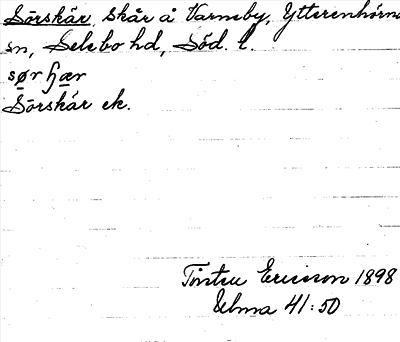 Sörskär, skär å Varnsby, Ytterenhörna
sn, Selebo hd, Söd. l.
sørʃær
Sörskär ek.
Torsten Ericsson 1898
Ulma 41:50